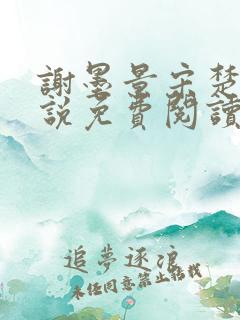 謝墨景宋楚
說免費閱讀
追夢逐浪
未經同意禁止轉載